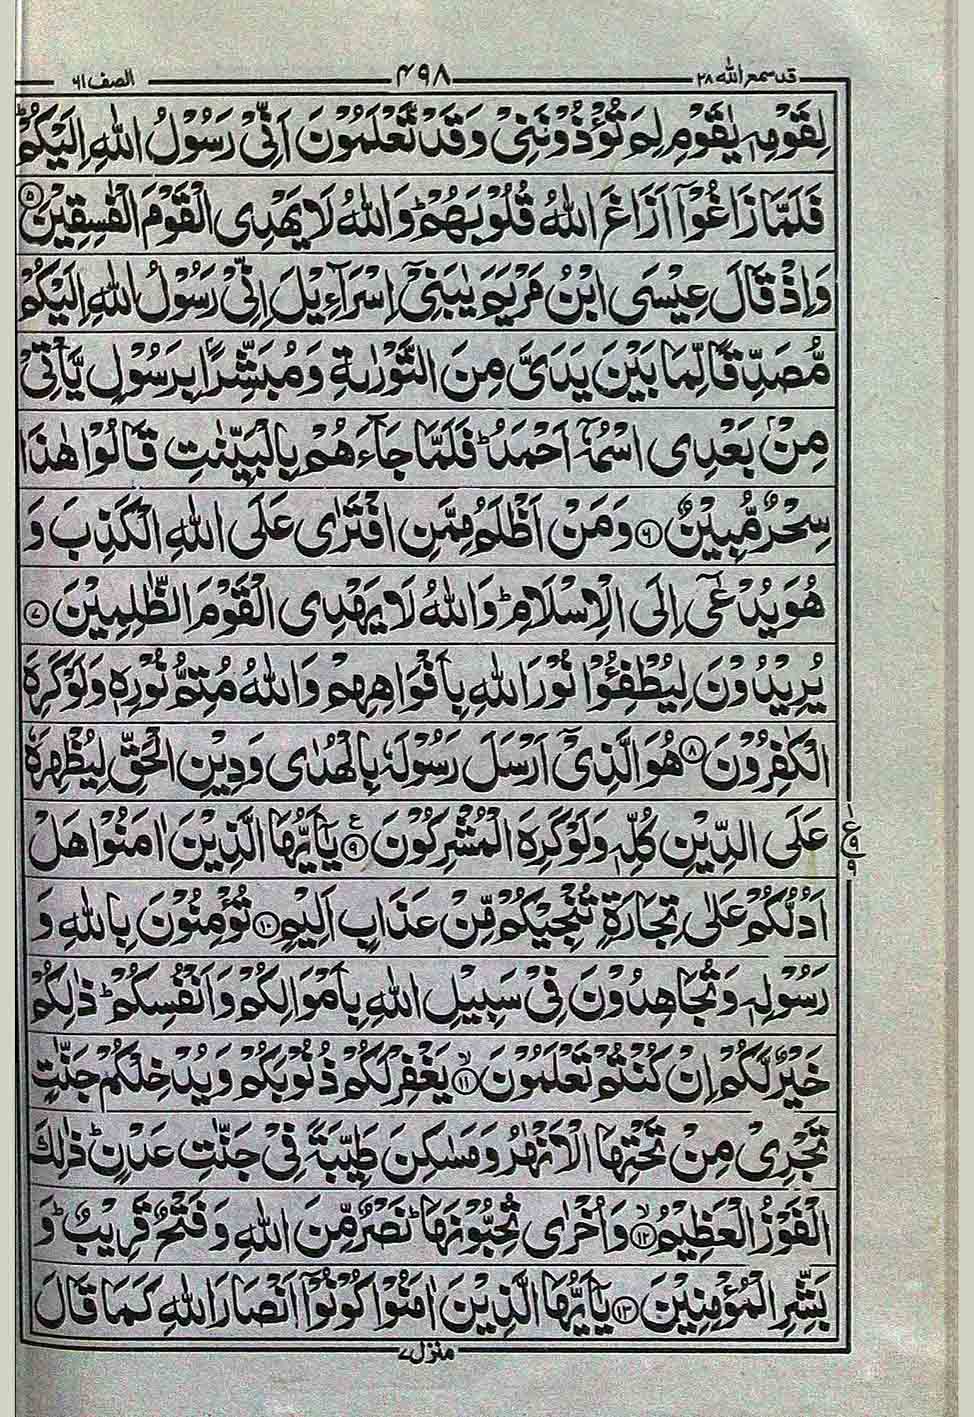 قد سمع الله ۲۸ ۴۹۸ الصف ۶۱
لِقَوْمِهٖ يٰقَوْمِ لِمَ تُؤْذُوْنَنِيْ وَقَدْ تَّعْلَمُوْنَ اَنِّيْ رَسُوْلُ اللّٰهِ اِلَيْكُمْ ؕ
فَلَمَّا زَاغُوْۤا اَزَاغَ اللّٰهُ قُلُوْبَهُمْ ؕ وَاللّٰهُ لَا يَهْدِي الْقَوْمَ الْفٰسِقِيْنَ ۵
وَاِذْ قَالَ عِيْسَى ابْنُ مَرْيَمَ يٰبَنِيْۤ اِسْرَآءِيْلَ اِنِّيْ رَسُوْلُ اللّٰهِ اِلَيْكُمْ
مُّصَدِّقًا لِّمَا بَيْنَ يَدَيَّ مِنَ التَّوْرٰىةِ وَمُبَشِّرًۢا بِرَسُوْلٍ يَّاْتِيْ
مِنْۢ بَعْدِي اسْمُهٗۤ اَحْمَدُ ؕ فَلَمَّا جَآءَهُمْ بِالْبَيِّنٰتِ قَالُوْا هٰذَا
سِحْرٌ مُّبِيْنٌ ۶ وَمَنْ اَظْلَمُ مِمَّنِ افْتَرٰى عَلَى اللّٰهِ الْكَذِبَ وَ
هُوَ يُدْعٰۤى اِلَى الْاِسْلَامِ ؕ وَاللّٰهُ لَا يَهْدِي الْقَوْمَ الظّٰلِمِيْنَ ۷
يُرِيْدُوْنَ لِيُطْفِـُٔوْا نُوْرَ اللّٰهِ بِاَفْوَاهِهِمْ وَاللّٰهُ مُتِمُّ نُوْرِهٖ وَلَوْ كَرِهَ
الْكٰفِرُوْنَ ۸ هُوَ الَّذِيْۤ اَرْسَلَ رَسُوْلَهٗ بِالْهُدٰى وَدِيْنِ الْحَقِّ لِيُظْهِرَهٗ
عَلَى الدِّيْنِ كُلِّهٖ وَلَوْ كَرِهَ الْمُشْرِكُوْنَ ۹ ع يٰۤاَيُّهَا الَّذِيْنَ اٰمَنُوْا هَلْ
ع ۹ ۹
اَدُلُّكُمْ عَلٰى تِجَارَةٍ تُنْجِيْكُمْ مِّنْ عَذَابٍ اَلِيْمٍ ۱۰ تُؤْمِنُوْنَ بِاللّٰهِ وَ
رَسُوْلِهٖ وَتُجَاهِدُوْنَ فِيْ سَبِيْلِ اللّٰهِ بِاَمْوَالِكُمْ وَاَنْفُسِكُمْ ؕ ذٰلِكُمْ
خَيْرٌ لَّكُمْ اِنْ كُنْتُمْ تَعْلَمُوْنَ ۱۱ۙ يَغْفِرْ لَكُمْ ذُنُوْبَكُمْ وَيُدْخِلْكُمْ جَنّٰتٍ
تَجْرِيْ مِنْ تَحْتِهَا الْاَنْهٰرُ وَمَسٰكِنَ طَيِّبَةً فِيْ جَنّٰتِ عَدْنٍ ؕ ذٰلِكَ
الْفَوْزُ الْعَظِيْمُ ۱۲ۙ وَاُخْرٰى تُحِبُّوْنَهَا ؕ نَصْرٌ مِّنَ اللّٰهِ وَفَتْحٌ قَرِيْبٌ ؕ وَ
بَشِّرِ الْمُؤْمِنِيْنَ ۱۳ يٰۤاَيُّهَا الَّذِيْنَ اٰمَنُوْا كُوْنُوْۤا اَنْصَارَ اللّٰهِ كَمَا قَالَ
منزل ۷